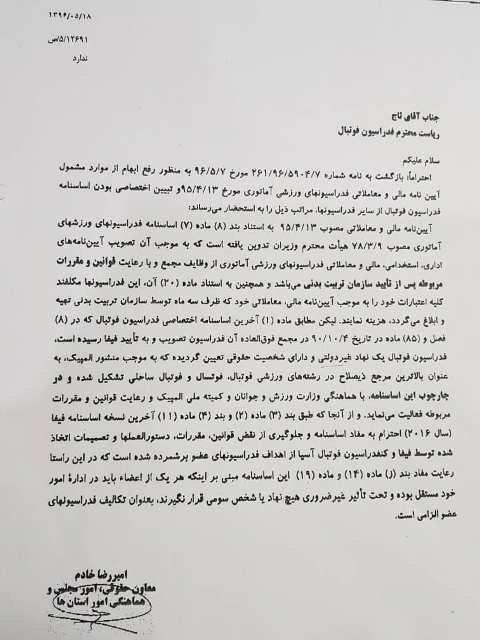 ۱۳۹۶/۰۵/۱۸
۵/۱۲۶۹۱/ص
ندارد
جناب آقای تاج
ریاست محترم فدراسیون فوتبال
سلام علیکم
احتراماً؛ بازگشت به نامه شماره ۲۶۱/۹۶/۵۹۰۴/۷ مورخ ۹۶/۵/۷ به منظور رفع ابهام از موارد مشمول
آیین نامه مالی و معاملاتی فدراسیونهای ورزشی آماتوری مورخ ۹۵/۴/۱۳و تبیین اختصاصی بودن اساسنامه
فدراسیون فوتبال از سایر فدراسیونها، مراتب ذیل را به استحضار می‌رساند:
آیین‌نامه مالی و معاملاتی مصوب ۹۵/۴/۱۳ به استناد بند (۸) ماده (۷) اساسنامه فدراسیونهای ورزشهای
آماتوری مصوب ۷۸/۳/۹ هیأت محترم وزیران تدوین یافته است که به موجب آن تصویب آیین‌نامه‌های
اداری، استخدامی، مالی و معاملاتی فدراسیونهای ورزشی آماتوری از وظایف مجمع و با رعایت قوانین و مقررات
مربوطه پس از تأیید سازمان تربیت بدنی می‌باشد و همچنین به استناد ماده (۲۰) آن، این فدراسیونها مکلفند
کلیه اعتبارات خود را به موجب آیین‌نامه مالی، معاملاتی خود که ظرف سه ماه توسط سازمان تربیت بدنی تهیه
و ابلاغ می‌گردد، هزینه نمایند. لیکن مطابق ماده (۱) آخرین اساسنامه اختصاصی فدراسیون فوتبال که در (۸)
فصل و (۸۵) ماده در تاریخ ۹۰/۱۰/۴ در مجمع فوق‌العاده آن فدراسیون تصویب و به تأیید فیفا رسیده است،
فدراسیون فوتبال یک نهاد غیردولتی و دارای شخصیت حقوقی تعیین گردیده که به موجب منشور المپیک، به
عنوان بالاترین مرجع ذیصلاح در رشته‌های ورزشی فوتبال، فوتسال و فوتبال ساحلی تشکیل شده و در
چارچوب این اساسنامه، با هماهنگی وزارت ورزش و جوانان و کمیته ملی المپیک و رعایت قوانین و مقررات
مربوطه فعالیت می‌نماید. و از آنجا که طبق بند (۳) ماده (۲) و بند (۴) ماده (۱۱) آخرین نسخه اساسنامه فیفا
(سال ۲۰۱۶) احترام به مفاد اساسنامه و جلوگیری از نقض قوانین، مقررات، دستورالعملها و تصمیمات اتخاذ
شده توسط فیفا و کنفدراسیون فوتبال آسیا از اهداف فدراسیونهای عضو برشمرده شده است که در این راستا
رعایت مفاد بند (ز) ماده (۱۴) و ماده (۱۹) این اساسنامه مبنی بر اینکه هر یک از اعضاء باید در ادارهٔ امور
خود مستقل بوده و تحت تأثیر غیرضروری هیچ نهاد یا شخص سومی قرار نگیرند، بعنوان تکالیف فدراسیونهای
عضو الزامی است.
امیررضا خادم
معاون حقوقی، امور مجلس و
هماهنگی امور استان ها